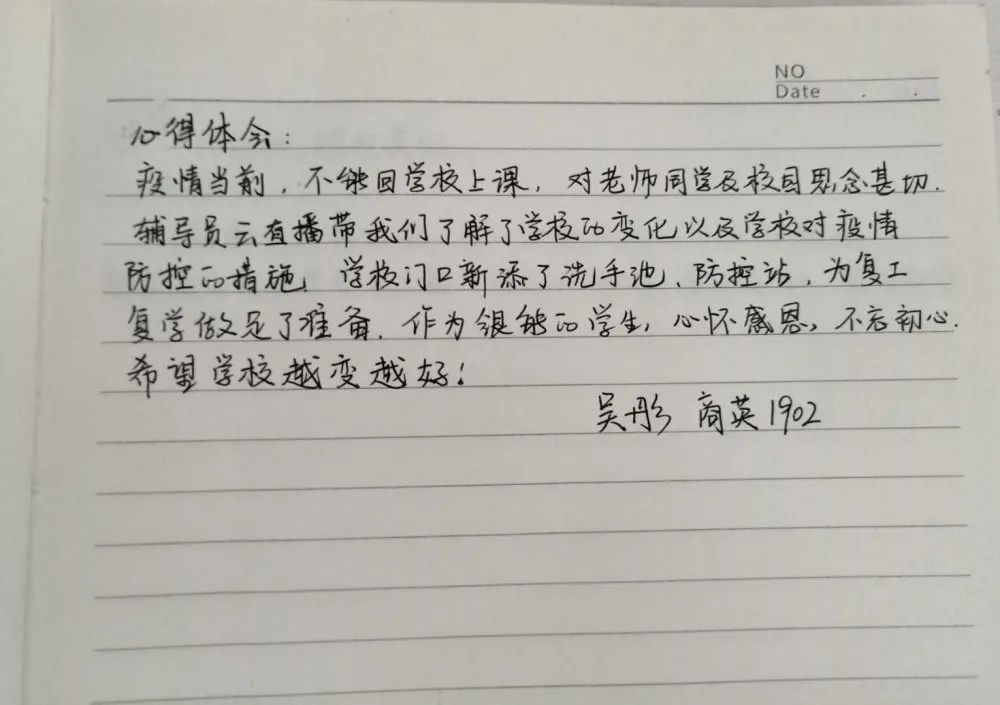 NO
Date . .
心得体会:
疫情当前,不能回学校上课,对老师同学及校园思念甚切.
辅导员云直播带我们了解了学校的变化以及学校对疫情
防控的措施.学校门口新添了洗手池、防控站,为复工
复学做足了准备.作为 能的学生,心怀感恩,不忘初心.
希望学校越变越好!
吴彤 商英1902